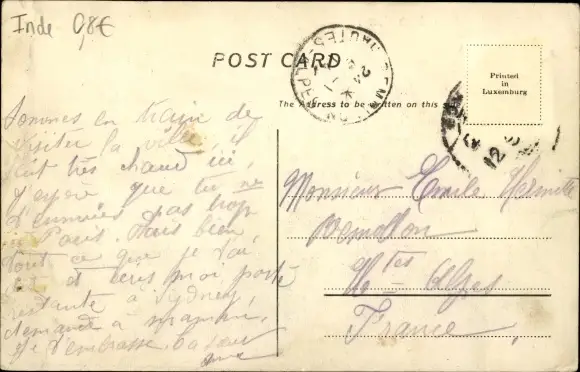 Inde 0,8€
POST CARD
Printed
in
Luxemburg
The Address to be written on this
Sommes en train de
visiter la ville, il
fait très chaud ici,
J'espère que tu ne
t'ennuies pas trop
à Paris. Fais bien
tout ce que je t'ai
dit et écris moi poste
restante à Sydney,
demande à maman,
Je t'embrasse. Ta
Monsieur Emile
Htes Alpes
France